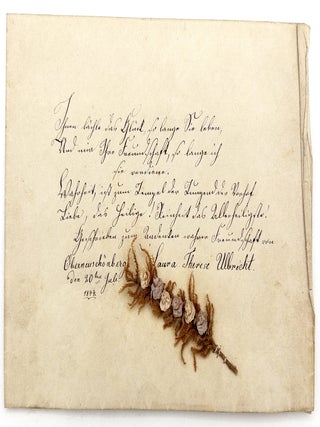 Ihnen lächle das Glück, so lange Sie leben,
Und mir Ihre Freundschaft, so lange ich
sie verdiene.
Wahrheit, ist zum Tempel der Tugend der Vorhof
Liebe, das Heilige! Reinheit das Allerheiligste!
Geschrieben zum Andenken wahrer Freundschaft von
Obernschönberg Laura Therese Ulbricht.
den 20ten Juli